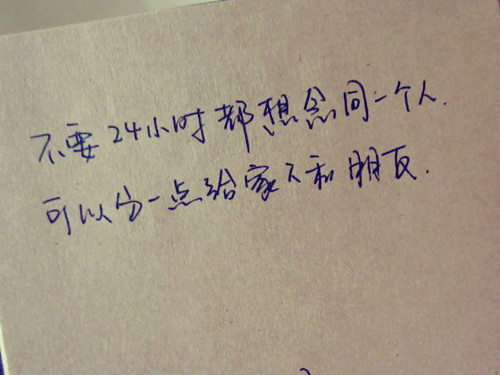 不要24小时都想念同一个人.
可以分一点给家人和朋友.